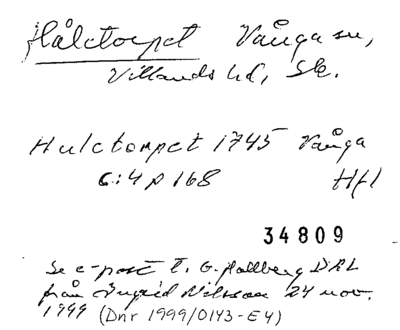 Håletorpet Vånga sn,
Villands hd, Sk.
Huletorpet 1745 Vånga
6:4 p 168 Hfl
34809
Se e-post t. G. Hallberg DAL
från Ingrid Nilsson 24 nov.
1999 (Dnr 1999/0143-E4)